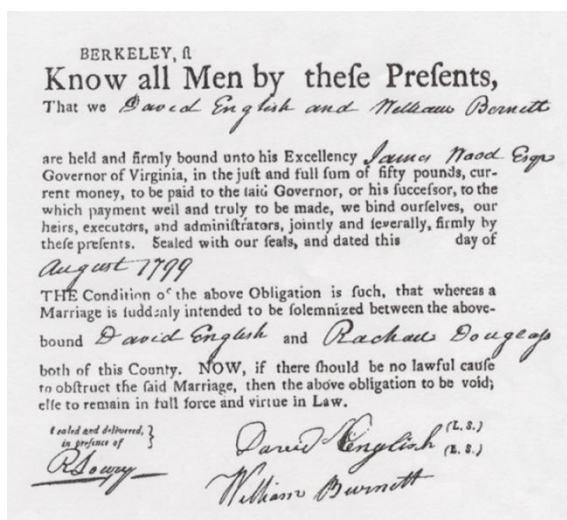 BERKELEY, ſſ
Know all Men by theſe Preſents,
That we David English and William Bernett
are held and firmly bound unto his Excellency James Wood Esqr
Governor of Virginia, in the juſt and full ſum of fifty pounds, cur-
rent money, to be paid to the ſaid Governor, or his ſucceſſor, to the
which payment well and truly to be made, we bind ourſelves, our
heirs, executors, and adminiſtrators, jointly and ſeverally, firmly by
theſe preſents. Sealed with our ſeals, and dated this day of
August 1799
THE Condition of the above Obligation is ſuch, that whereas a
Marriage is ſuddenly intended to be ſolemnized between the above-
bound David English and Rachau Douglass
both of this County. NOW, if there ſhould be no lawful cauſe
to obſtruct the ſaid Marriage, then the above obligation to be void;
elſe to remain in full force and virtue in Law.
ſealed and delivered,
in preſence of
David English (L. S.)
(L. S.)
William Burnett